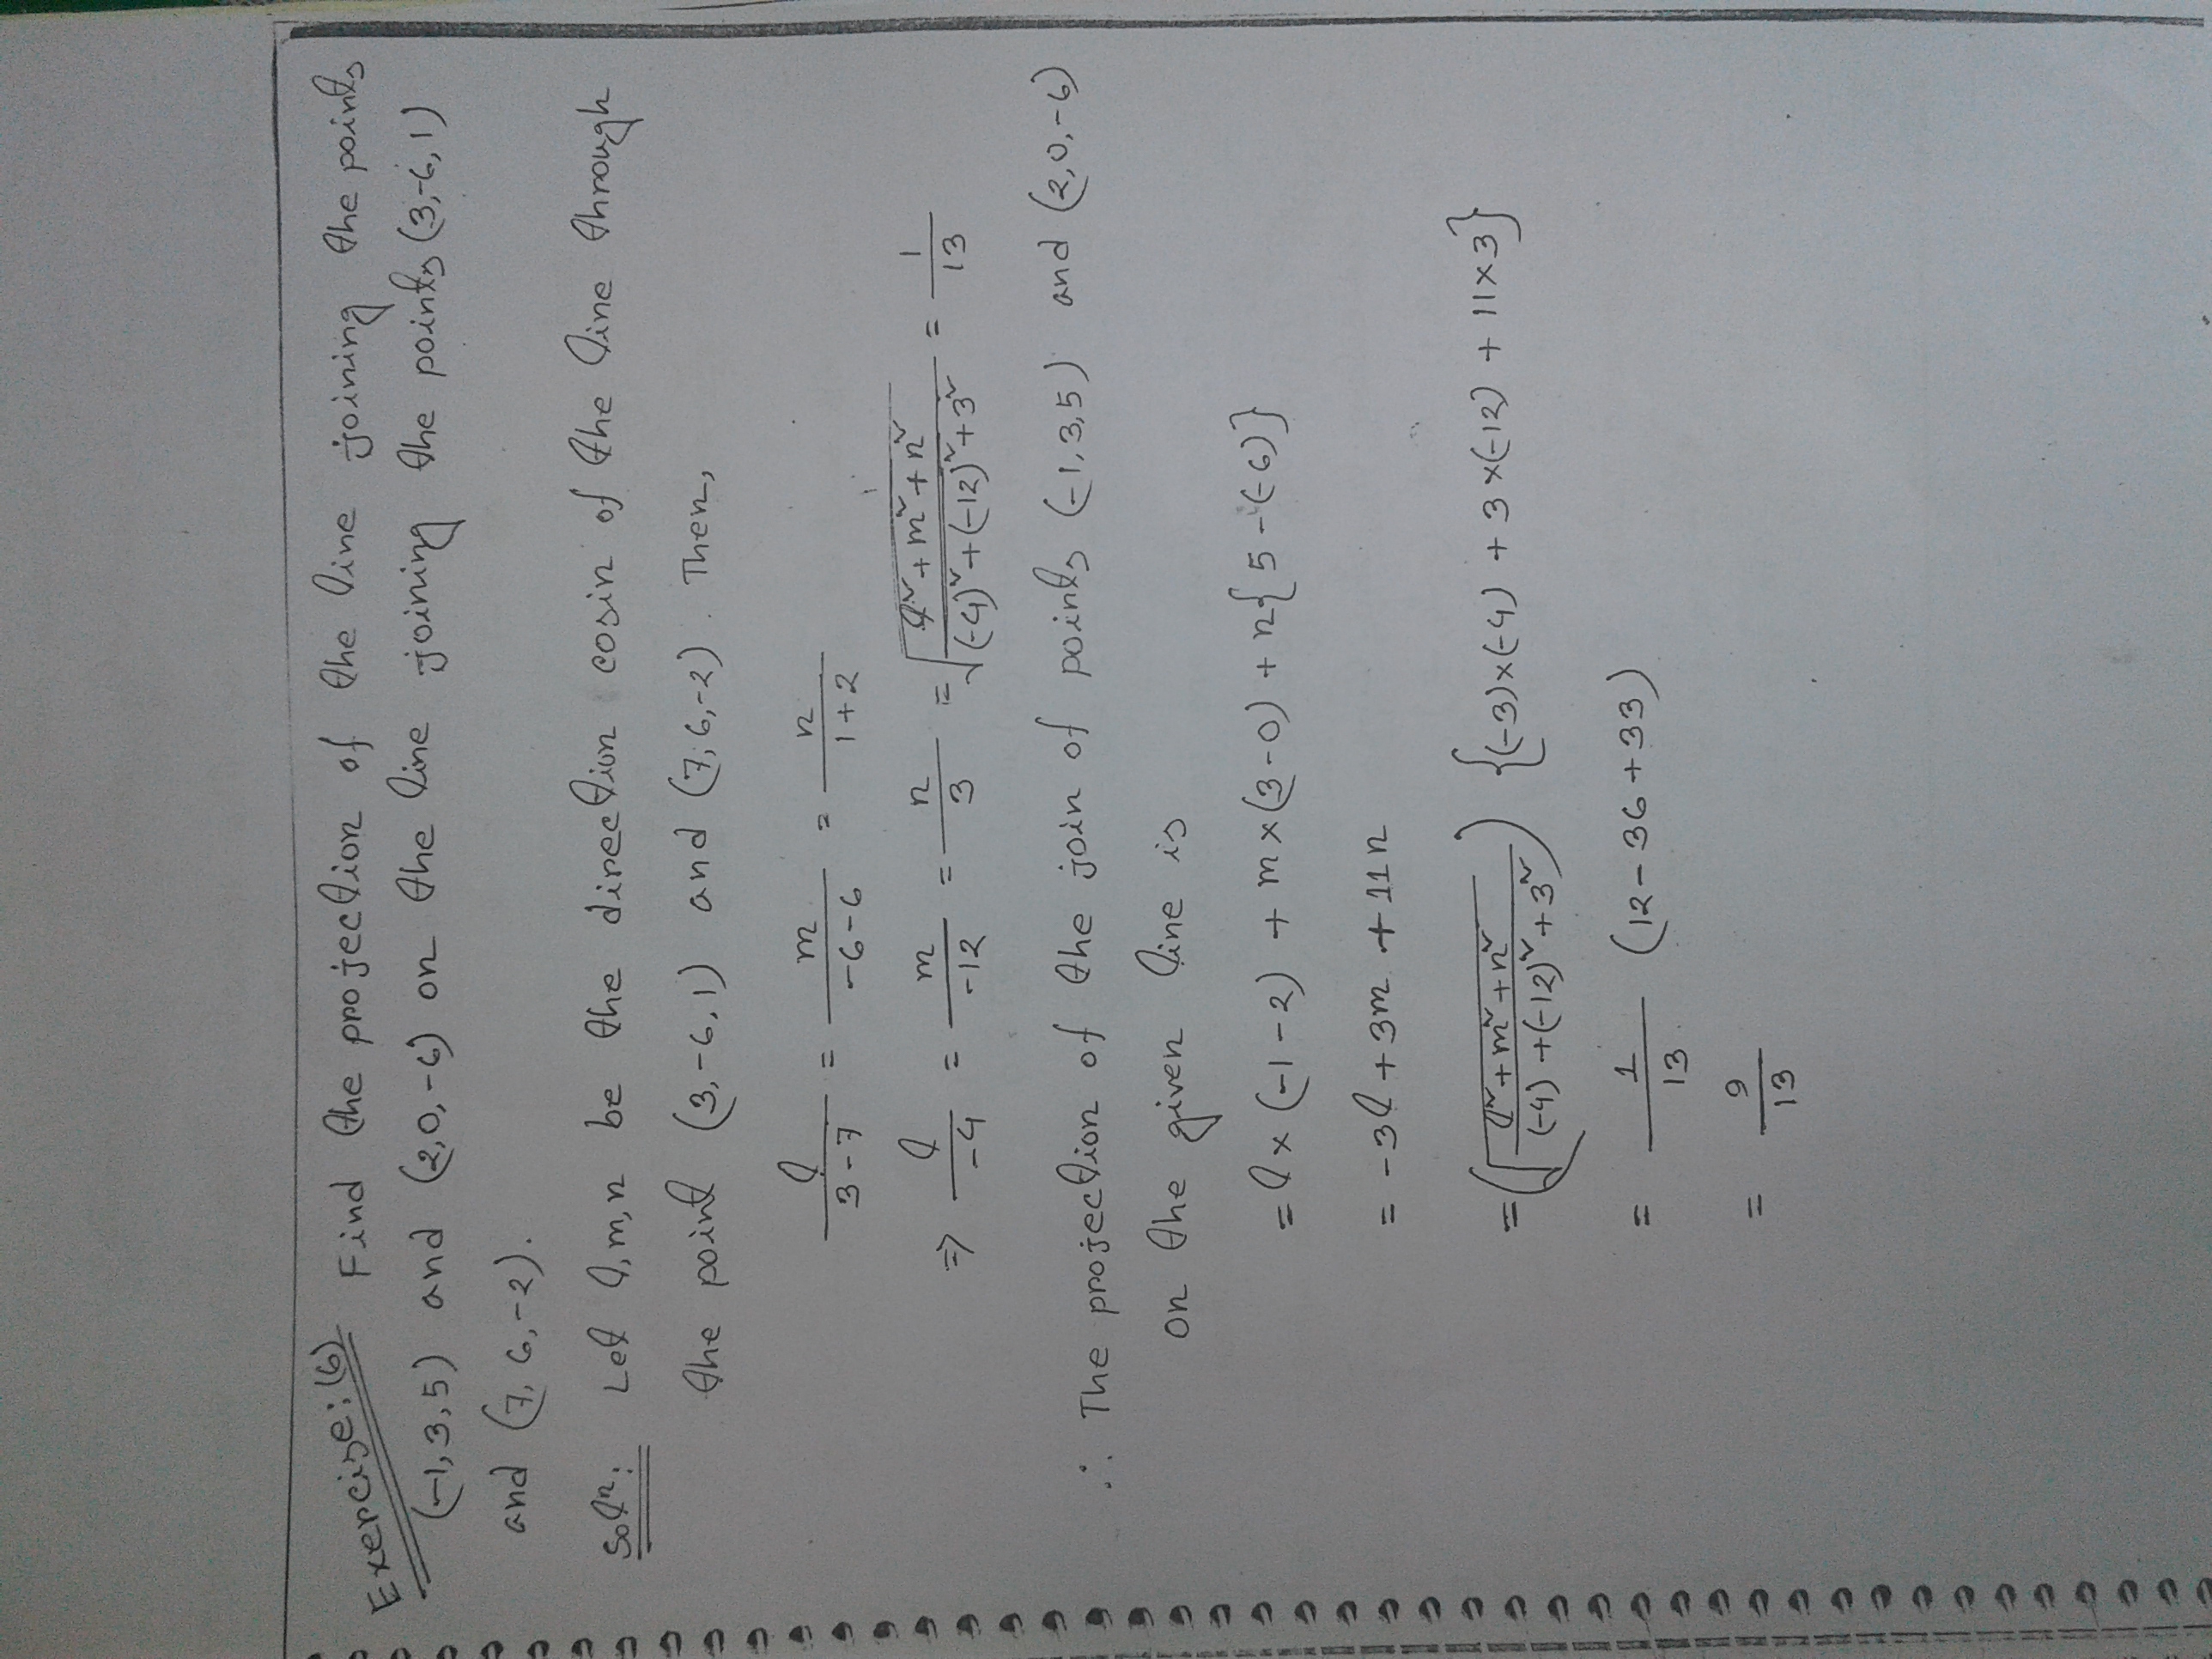 Exercise: (6) Find the projection of the line joining the points
(-1, 3, 5) and (2, 0, -6) on the line joining the points (3, -6, 1)
and (7, 6, -2).
Solⁿ: Let l, m, n be the direction cosin of the line through
the point (3, -6, 1) and (7, 6, -2). Then,
l/(3-7) = m/(-6-6) = n/(1+2)
=> l/-4 = m/-12 = n/3 = √((l²+m²+n²)/((-4)²+(-12)²+3²)) = 1/13
∴ The projection of the join of points (-1, 3, 5) and (2, 0, -6)
on the given line is
= l × (-1-2) + m × (3-0) + n{5-(-6)}
= -3l + 3m + 11n
= (√((l²+m²+n²)/((-4)+(-12)²+3²))) {(-3)×(-4) + 3×(-12) + 11×3}
= 1/13 (12-36+33)
= 9/13